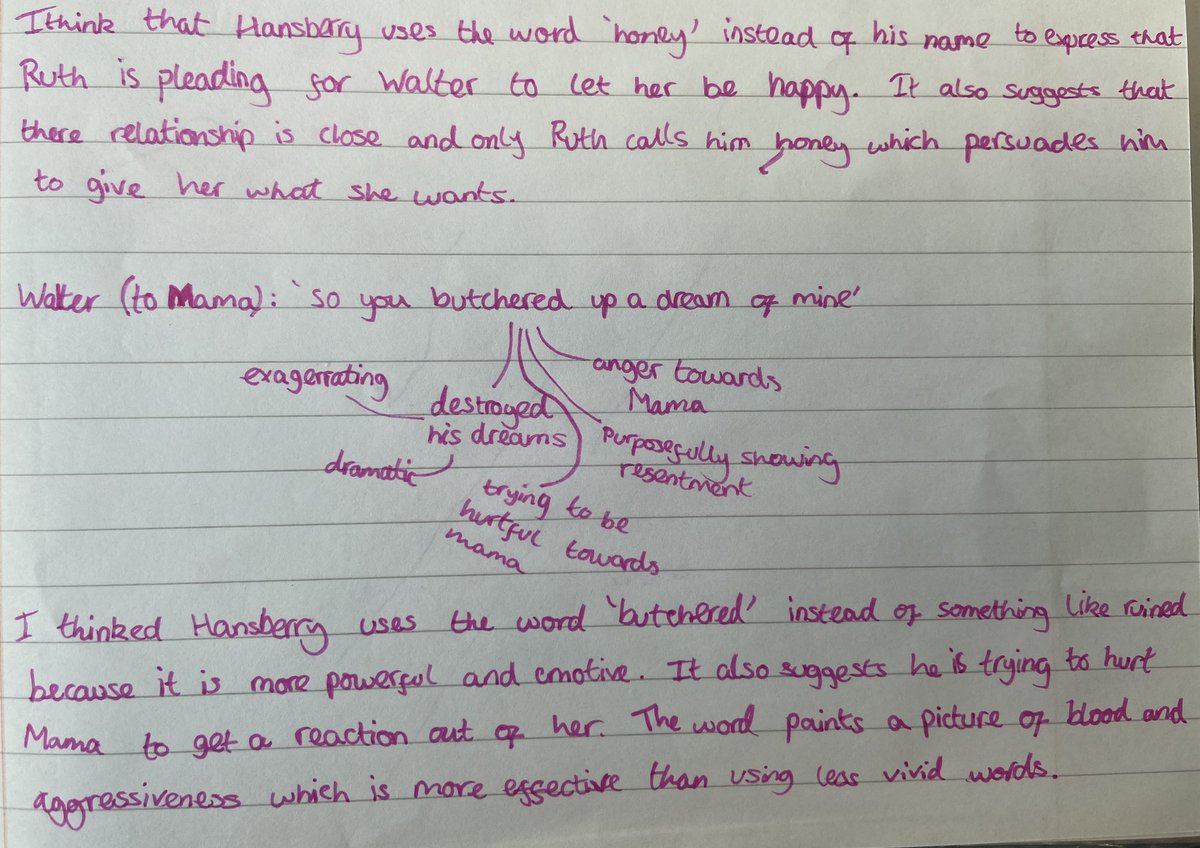 I think that Hansberry uses the word 'honey' instead of his name to express that
Ruth is pleading for Walter to let her be happy. It also suggests that
there relationship is close and only Ruth calls him honey which persuades him
to give her what she wants.
Walter (to Mama): 'so you butchered up a dream of mine'
exagerrating
destroyed
his dreams
dramatic
trying to be
hurtful towards
mama
purposefully showing
resentment
anger towards
Mama
I thinked Hansberry uses the word 'butchered' instead of something like ruined
because it is more powerful and emotive. It also suggests he is trying to hurt
Mama to get a reaction out of her. The word paints a picture of blood and
aggressiveness which is more effective than using less vivid words.